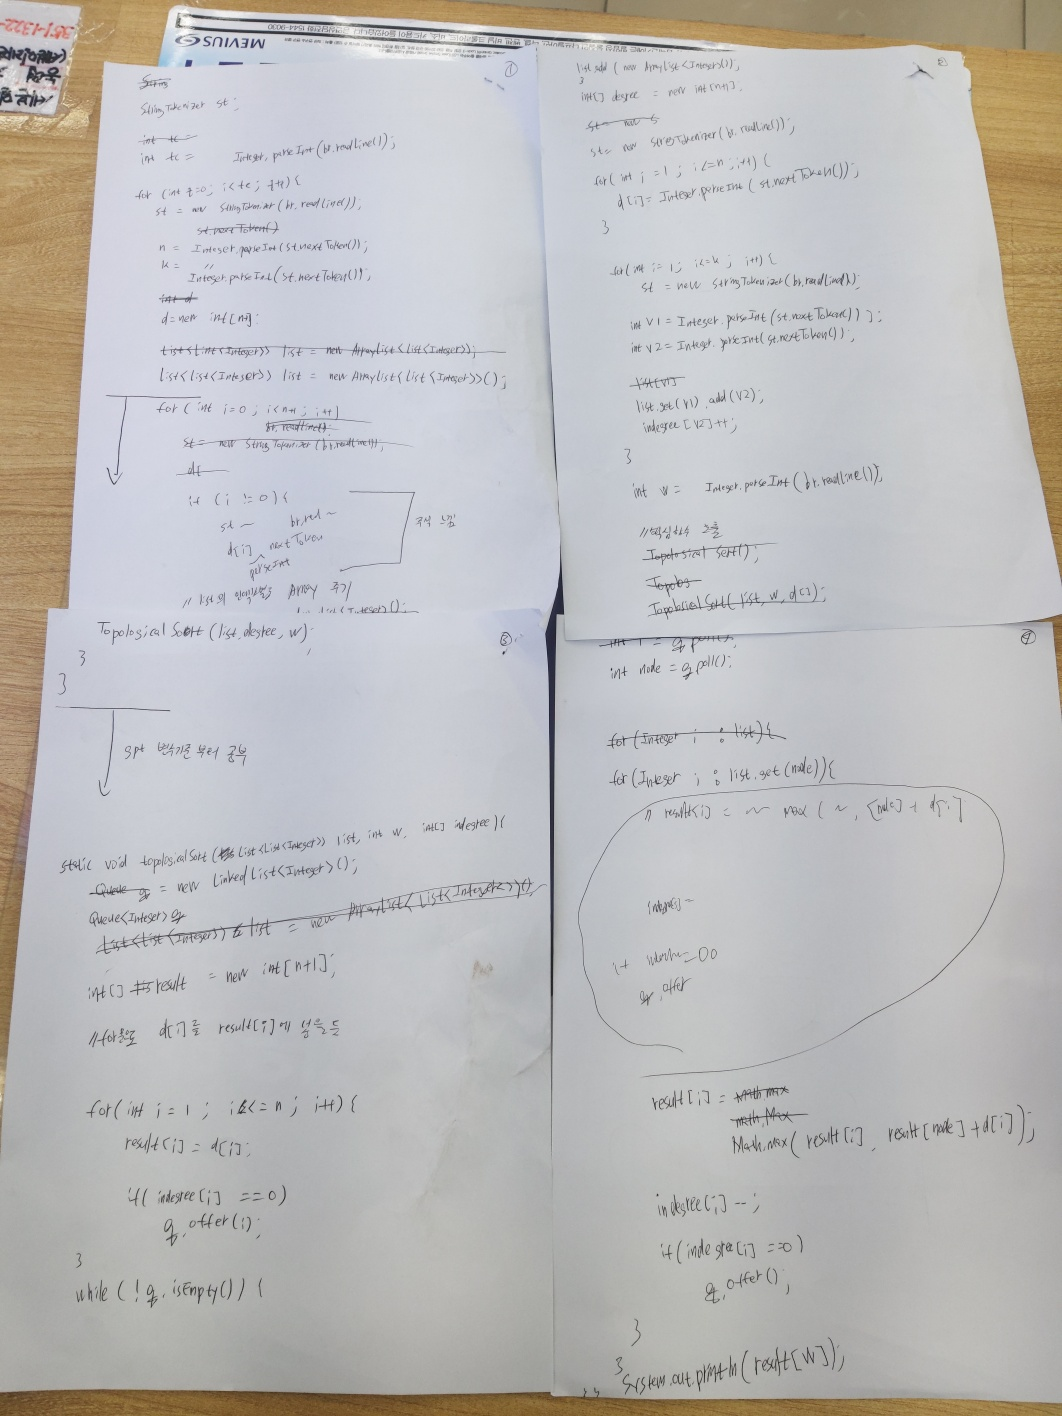 351-1322-
MEVIUS
①
String
StringTokenizer st;
int tc =
int tc = Integer.parseInt(br.readLine());
for (int t=0; i<tc; t++){
st = new StringTokenizer(br.readLine());
st.nextToken()
n = Integer.parseInt(st.nextToken());
k = "
Integer.parseInt(st.nextToken());
int d
d = new int[n+1];
List<List<Integer>> list = new ArrayList<List<Integer>>;
List<List<Integer>> list = new ArrayList<List<Integer>>();
for ( int i=0; i<n+1; i++)
br.readLine()
st = new StringTokenizer(br.readLine());
d[
if (i != 0){
st ~ br.red ~
d[i] nextToken
parseInt
주석 느낌
List<Integer>();
②
list.add( new ArrayList<Integer>());
}
int[] degree = new int[n+1];
st = new S
st = new StringTokenizer(br.readLine());
for( int i = 1; i<=n; i++) {
d[i] = Integer.parseInt(st.nextToken());
}
for(int i = 1; i<=k; i++){
st = new StringTokenizer(br.readLine());
int V1 = Integer.parseInt(st.nextToken());
int V2 = Integer.parseInt(st.nextToken());
list[v1]
list.get(V1).add(V2);
indegree[V2]++;
}
int w = Integer.parseInt(br.readLine());
Topological Sort();
Topolog
Topological Sort(list, w, d[]);
③
Topological Sort(list, degree, w);
}
}
gpt 변수기준 부터 공부
static void topologicalSort(List<List<Integer>> list, int w, int[] indegree){
Queue q = new LinkedList<Integer>();
Queue<Integer> q
List<List<Integer>> list = new ArrayList<List<Integer>>()
int[] result = new int[n+1];
//for문으로 d[i]를 result[i]에 넣을 듯
for( int i = 1; i<=n; i++){
result[i] = d[i];
if( indegree[i] == 0)
q.offer(i);
}
while (!q.isEmpty()) {
④
int i = q.poll();
int node = q.poll();
for(Integer i : list){
for(Integer i : list.get(node)){
result[i] = ~ max ( ~, [node] + d[i]
q.offer
result[i] = Math max
math.Max
Math.max( result[i], result[node] + d[i]);
indegree[i]--;
if(indegree[i] == 0)
q.offer();
}
}
System.out.println(result[W]);
}}